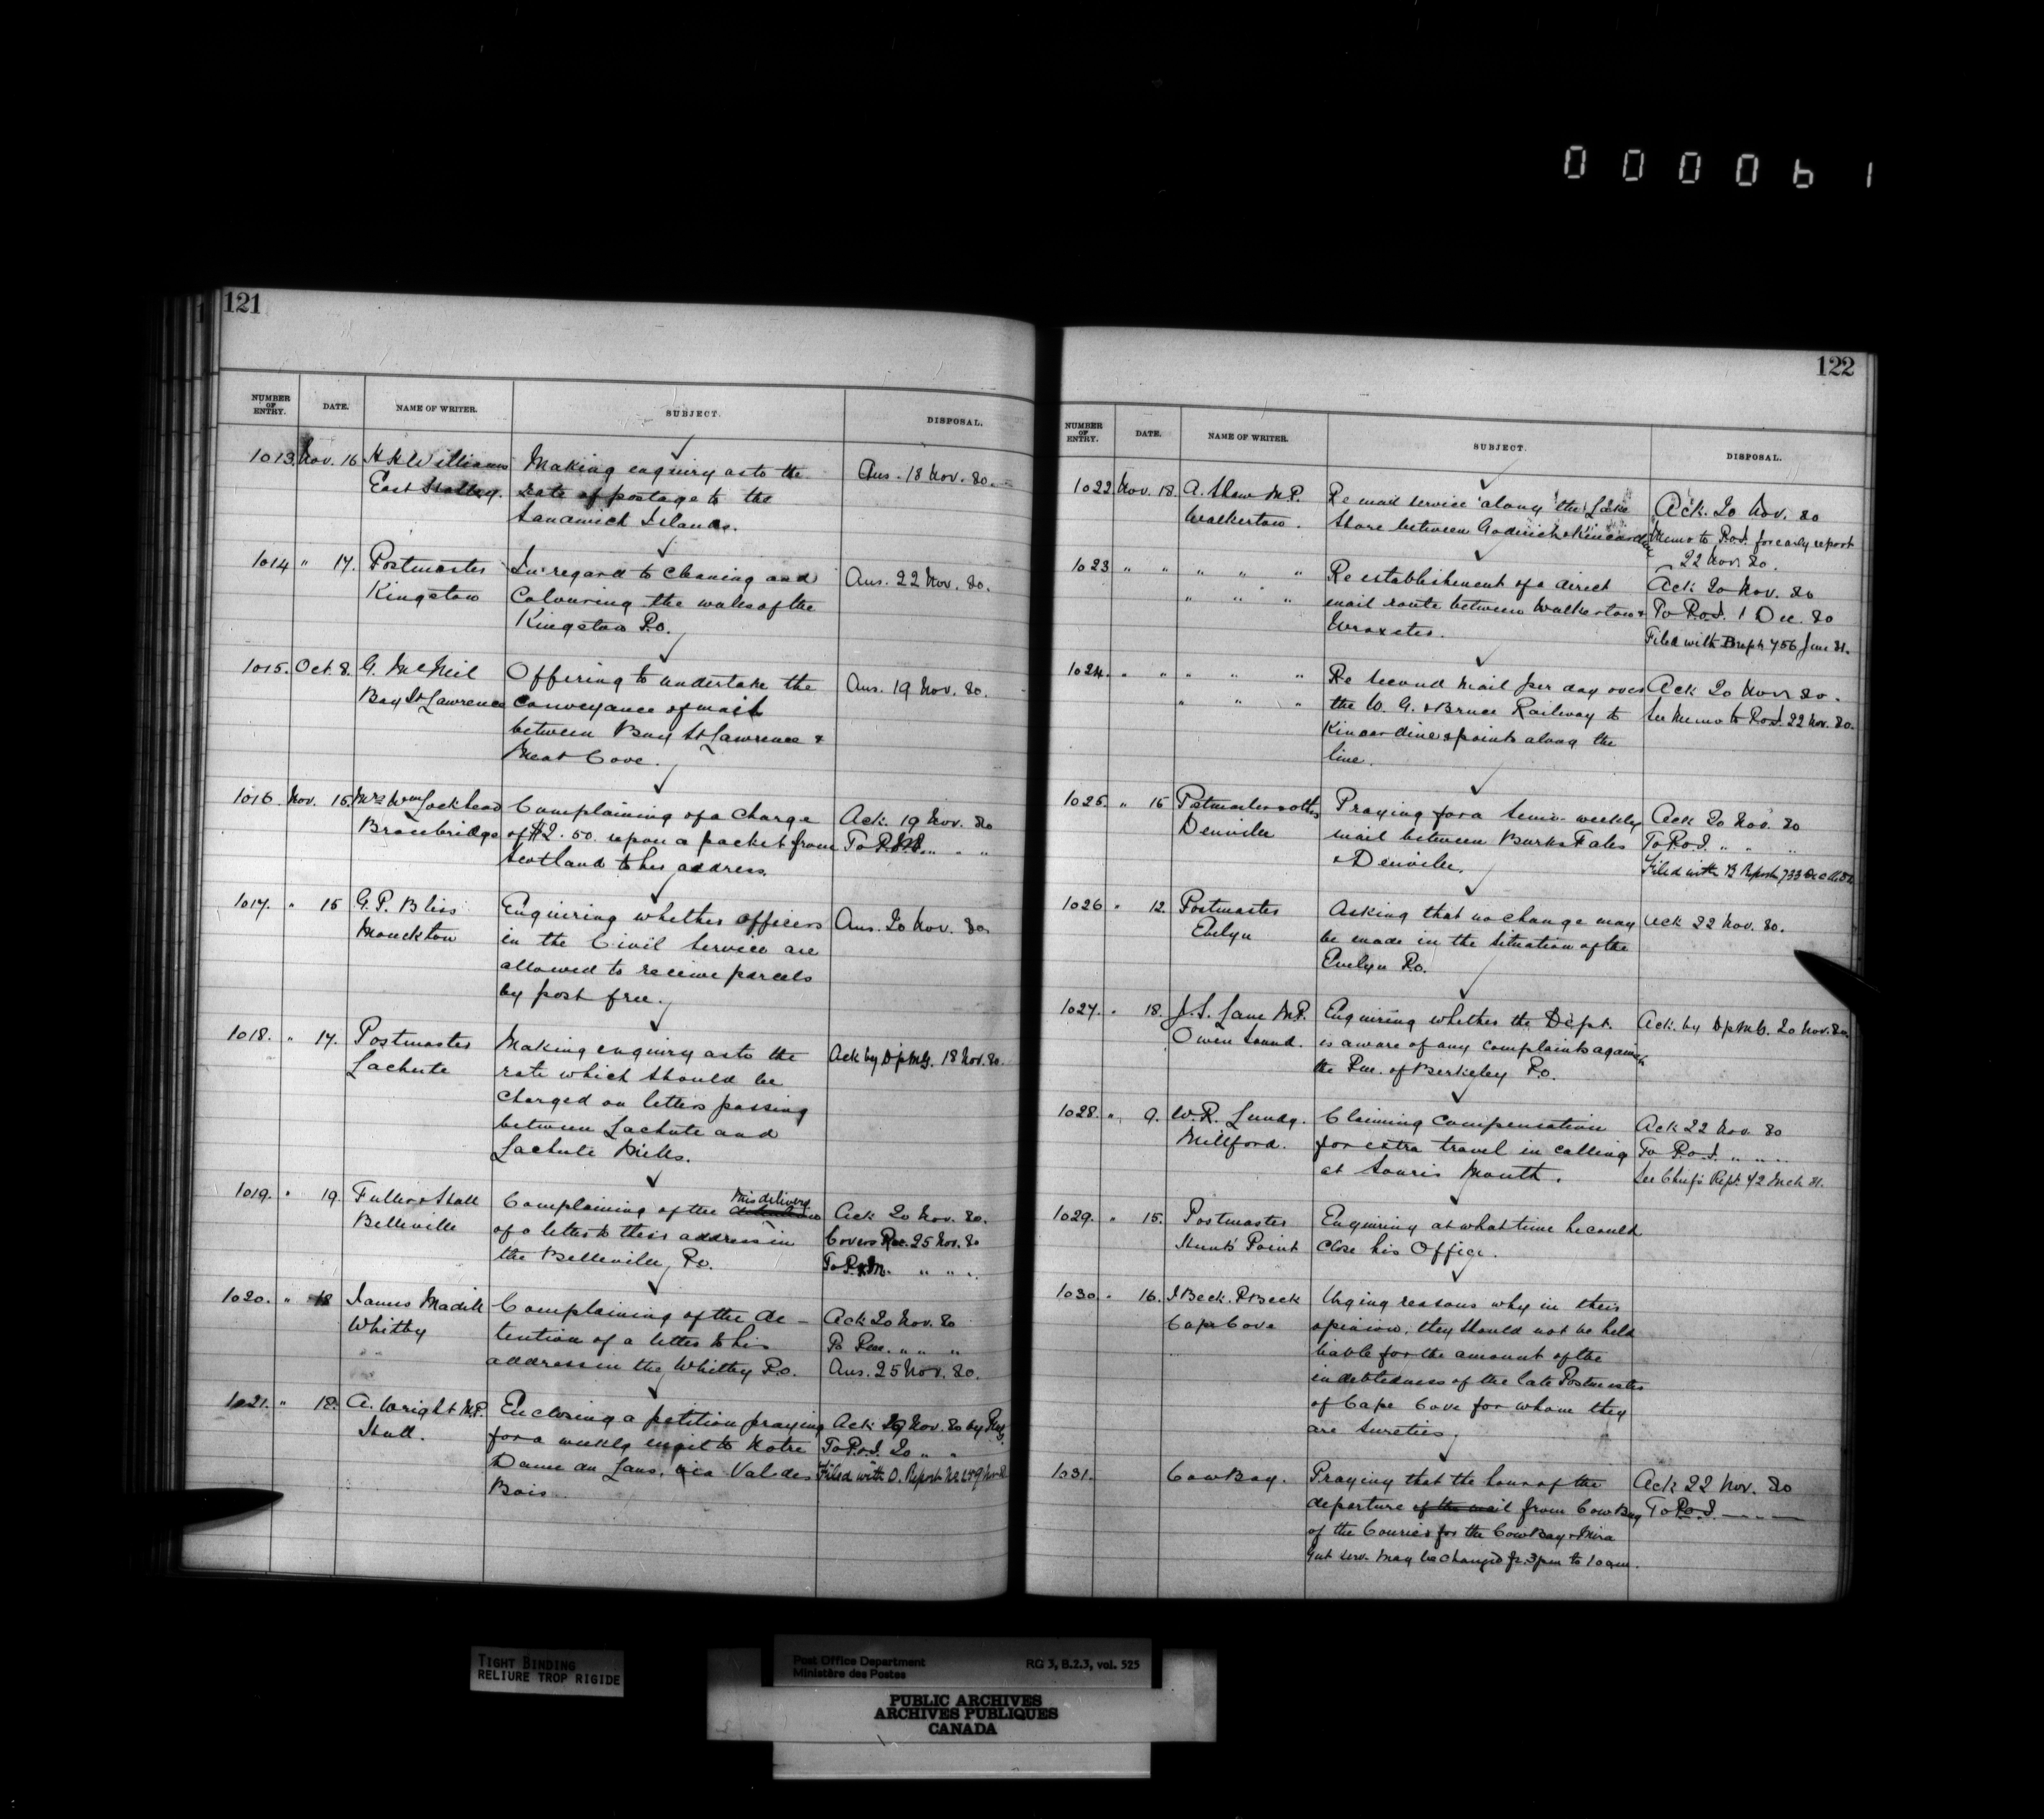 000061
121
NUMBER OF ENTRY. DATE. NAME OF WRITER. SUBJECT. DISPOSAL.
1013 Nov. 16 H H Williams Making enquiry as to the Ans. 18 Nov. 80.
East Hatley. rate of postage to the
Sandwich Islands.
1014 " 17. Postmaster In regard to cleaning and Ans. 22 Nov. 80.
Kingston Colouring the walls of the
Kingston P.O.
1015. Oct. 8. G. McNeil Offering to undertake the Ans. 19 Nov. 80.
Bay St Lawrence conveyance of mail
between Bay St Lawrence &
Meat Cove.
1016. Nov. 15. Mrs Wm Lockhead Complaining of a charge Ack. 19 Nov. 80
Bracebridge of $2.50. upon a packet from To " " "
Scotland to her address.
1017. " 15 G. P. Bliss Enquiring whether officers Ans. 20 Nov. 80
Monckton in the Civil Service are
allowed to receive parcels
by post free.
1018. " 17. Postmaster Making enquiry as to the Ack by DPMG. 18 Nov. 80.
Lachute rate which should be
charged on letters passing
between Lachute and
Lachute Mills.
1019. " 19. Fuller & Hall Complaining of the misdelivery Ack 20 Nov. 80.
Belleville of a letter to their address in Covers Rec. 25 Nov. 80
the Belleville P.O. To " " "
1020. " 18 James Madill Complaining of the de- Ack 20 Nov. 80
Whitby tention of a letter to his To Pm. " " "
address in the Whitby P.O. Ans. 25 Nov. 80.
1021. " 18. A. Wright M.P. Enclosing a petition praying Ack 19 Nov. 80 by PMG.
Hull. for a weekly mail to Notre To P.O.I. 20 " "
Dame du Laus, via Val des Filed with O. Report No.
Bois
122
NUMBER OF ENTRY. DATE. NAME OF WRITER. SUBJECT. DISPOSAL.
1022 Nov. 18. A. Shaw M.P. Re mail service along the Lake Ack. 20 Nov. 80
Walkerton. Shore between Goderich & Kincardine Memo to P.O.I. for early report
22 Nov 80.
1023 " " " " " Re establishment of a direct Ack 20 Nov. 80
" " " mail route between Walkerton & To P.O.I. 1 Dec. 80
Wroxeter. Filed with B rept 756 June 81.
1024. " " " " " Re second mail per day over Ack 20 Nov 80.
" " " the W. G. & Bruce Railway to See memo to P.O.I. 22 Nov. 80.
Kincardine & points along the
line.
1025. " 15 Pstmaster & oths Praying for a semi-weekly Ack 20 Nov. 80
Denville mail between Burks Falls To P.O.I. " " "
& Denville. Filed with B Report 733
1026 " 12. Postmaster Asking that no change may Ack 22 Nov. 80.
Evelyn be made in the situation of the
Evelyn P.O.
1027. " 18. J. S. Lane M.P. Enquiring whether the Dept. Ack. by DPMG. 20 Nov. 80
Owen Sound. is aware of any complaints against
the Pm. of Berkeley P.O.
1028. " 9. W. R. Lundy. Claiming compensation Ack 22 Nov. 80
Millford. for extra travel in calling To P.O.I. " " "
at Souris Mouth. See Chief's Rept. 42 Mch 81.
1029. " 15. Postmaster Enquiring at what time he could
Hunts Point close his Office.
1030 " 16. I Beck. P Beck Urging reasons why in their
Cape Cove opinion, they should not be held
liable for the amount of the
indebtedness of the late Postmaster
of Cape Cove for whom they
are sureties.
1031. Cow Bay. Praying that the hour of the Ack 22 Nov. 80
departure of the mail from Cow Bay To P.O.I.
of the Courier for the Cow Bay & Mira
Gut serv. may be changed fr. 3pm to 10 am.
TIGHT BINDING
RELIURE TROP RIGIDE
Post Office Department RG 3, B.2.3, vol. 525
Ministère des Postes
PUBLIC ARCHIVES
ARCHIVES PUBLIQUES
CANADA